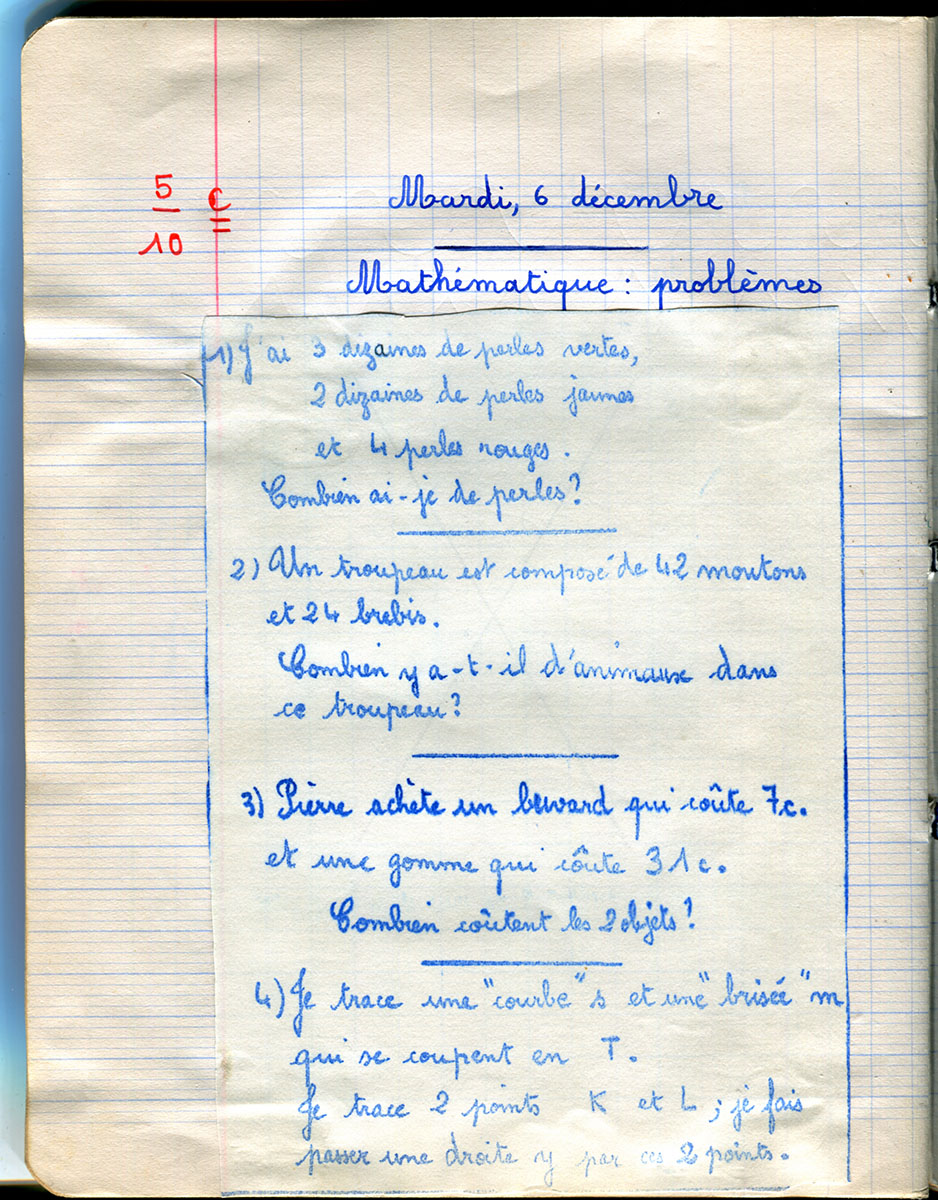 5
10
C
Mardi, 6 décembre
Mathématique : problèmes
1) J'ai 3 dizaines de perles vertes,
2 dizaines de perles jaunes
et 4 perles rouges.
Combien ai-je de perles?
2) Un troupeau est composé de 42 moutons
et 24 brebis.
Combien y a-t-il d'animaux dans
ce troupeau?
3) Pierre achète un buvard qui coûte 7c.
et une gomme qui coûte 31c.
Combien coûtent les 2 objets?
4) Je trace une "courbe" s et une "brisée" m
qui se coupent en T.
Je trace 2 points K et L ; je fais
passer une droite y par ces 2 points.